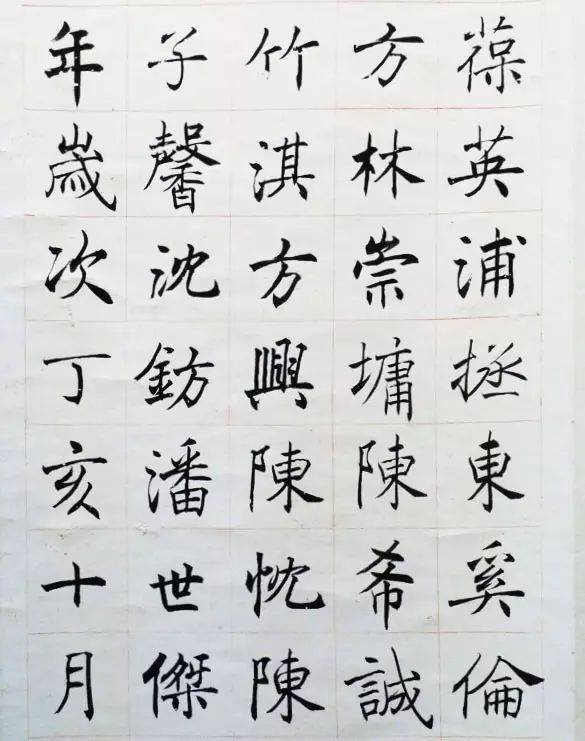 葆英浦拯東奚倫
方林崇墉陳希誠
竹淇方興陳忱陳
子馨沈鈁潘世傑
年歲次丁亥十月